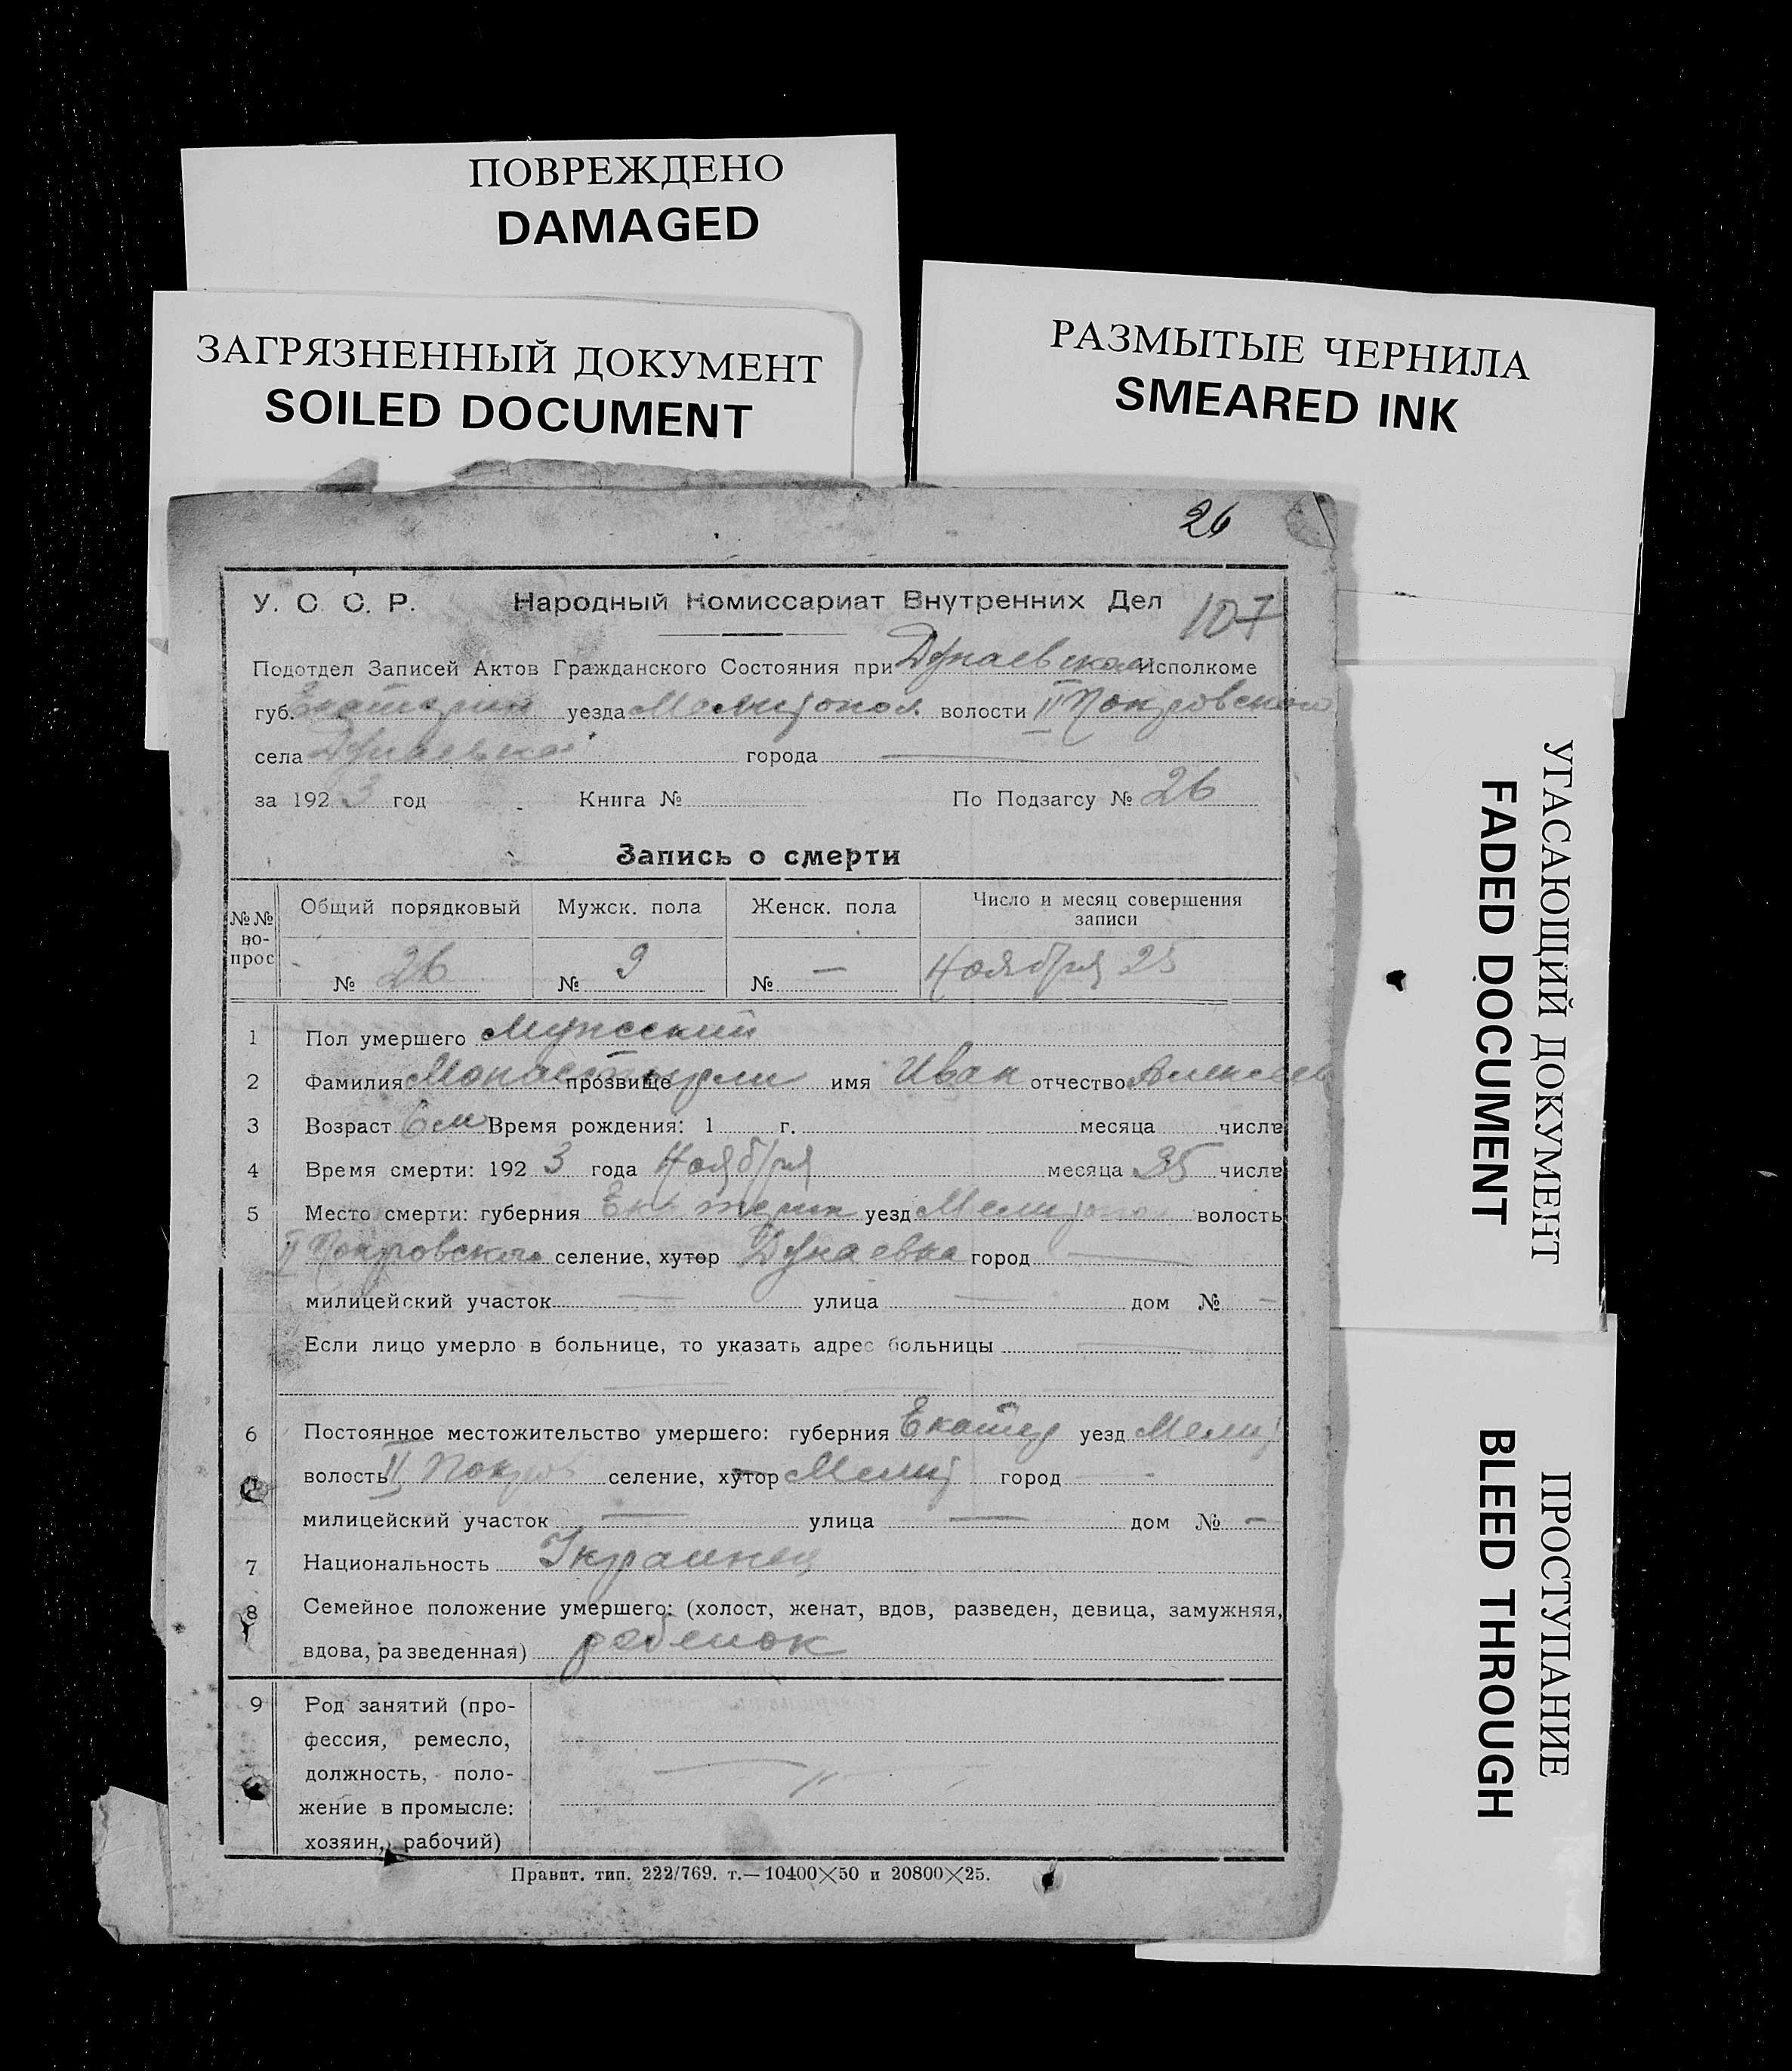 ПОВРЕЖДЕНО
DAMAGED
ЗАГРЯЗНЕННЫЙ ДОКУМЕНТ
SOILED DOCUMENT
РАЗМЫТЫЕ ЧЕРНИЛА
SMEARED INK
26
У. С. С. Р. Народный Комиссариат Внутренних Дел 107
Подотдел Записей Актов Гражданского Состояния при Дунаевском Исполкоме
губ. Екатерин уезда Мелитопол. волости II Покровской
села Дунаевка города —
за 1923 год Книга № По Подзагсу № 26
Запись о смерти
№№ вопрос Общий порядковый Мужск. пола Женск. пола Число и месяц совершения
записи
№ 26 № 9 № — Ноября 25
1 Пол умершего Мужеский
2 Фамилия прозвище имя Иван отчество Алексеев
3 Возраст 6 м Время рождения: 1 г. месяца числа
4 Время смерти: 1923 года Ноября месяца 25 числа
5 Место смерти: губерния Екатерин уезд Мелитопол волость
II Покровской селение, хутор Дунаевка город —
милицейский участок — улица — дом № —
Если лицо умерло в больнице, то указать адрес больницы —
6 Постоянное местожительство умершего: губерния Екатер уезд Мелит
волость II Покров селение, хутор Мелит город —
милицейский участок — улица — дом № —
7 Национальность Украинец
8 Семейное положение умершего: (холост, женат, вдов, разведен, девица, замужняя,
вдова, разведенная) ребенок
9 Род занятий (про-
фессия, ремесло,
должность, поло-
жение в промысле:
хозяин, рабочий)
Правит. тип. 222/769. т.—10400×50 и 20800×25.
УГАСАЮЩИЙ ДОКУМЕНТ
FADED DOCUMENT
ПРОСТУПАНИЕ
BLEED THROUGH